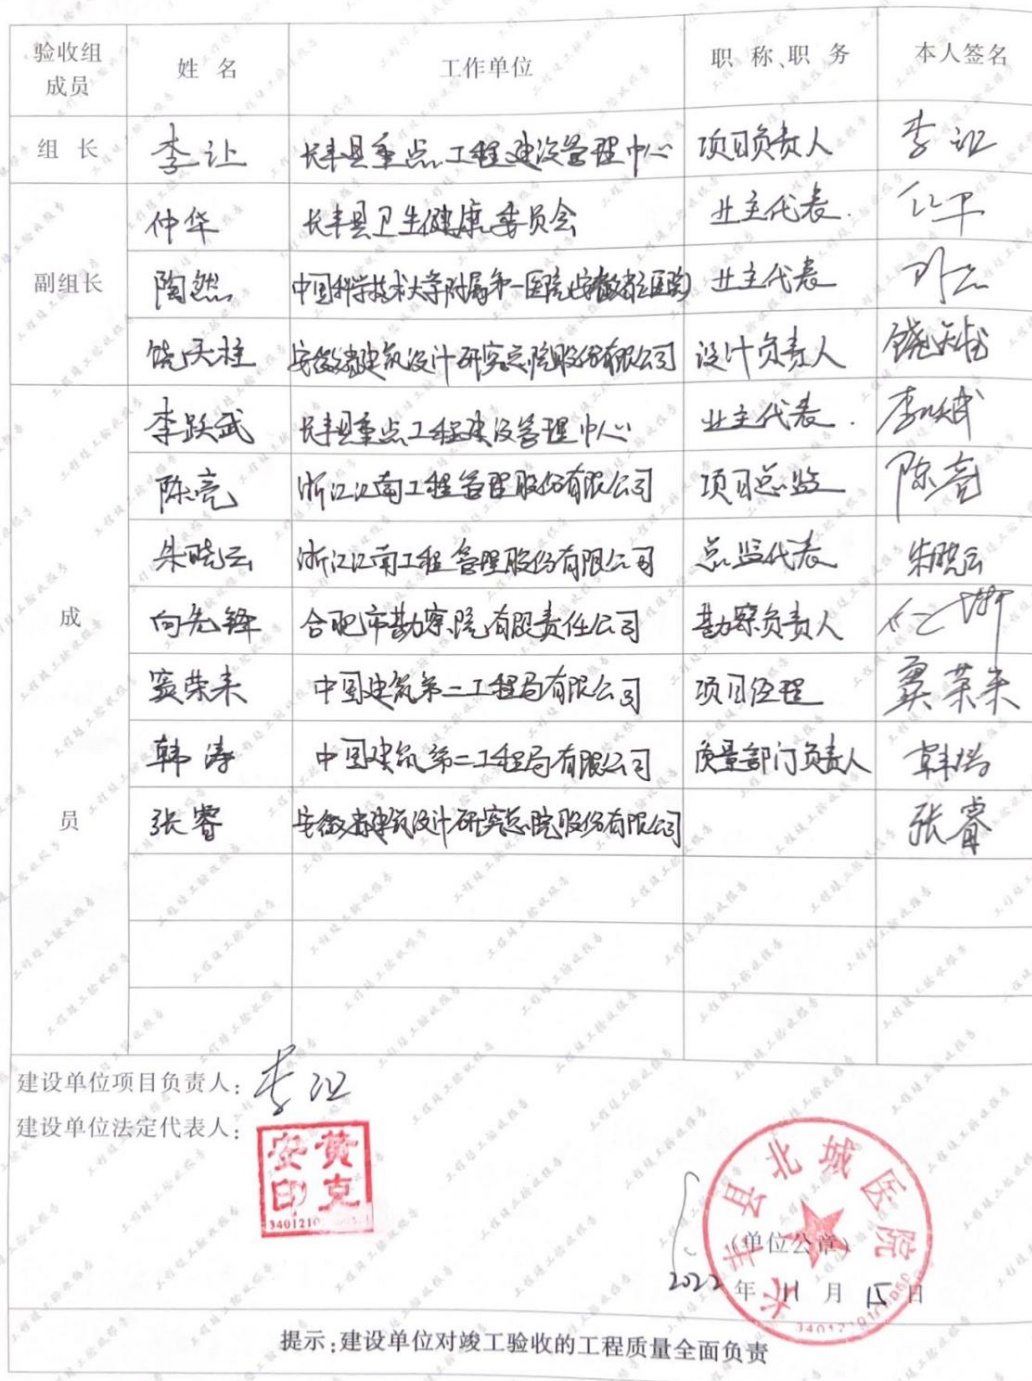 验收组成员 姓名 工作单位 职称、职务 本人签名
组长 李让 长丰县重点工程建设管理中心 项目负责人 李让
仲华 长丰县卫生健康委员会 业主代表.
副组长 陶然 中国科学技术大学附属第一医院(安徽省立医院) 业主代表
饶天柱 安徽省建筑设计研究总院股份有限公司 设计负责人 饶天柱
李跃武 长丰县重点工程建设管理中心 业主代表. 李跃武
陈亮 浙江江南工程管理股份有限公司 项目总监 陈亮
朱晓云 浙江江南工程管理股份有限公司 总监代表 朱晓云
成 向先锋 合肥市勘察院有限责任公司 勘察负责人
窦荣来 中国建筑第二工程局有限公司 项目经理 窦荣来
韩涛 中国建筑第二工程局有限公司 质量部门负责人 韩涛
员 张睿 安徽省建筑设计研究总院股份有限公司 张睿
建设单位项目负责人: 李让
建设单位法定代表人:
黄克安印
长丰县北城医院
(单位公章)
2022 年 11 月 15 日
提示:建设单位对竣工验收的工程质量全面负责